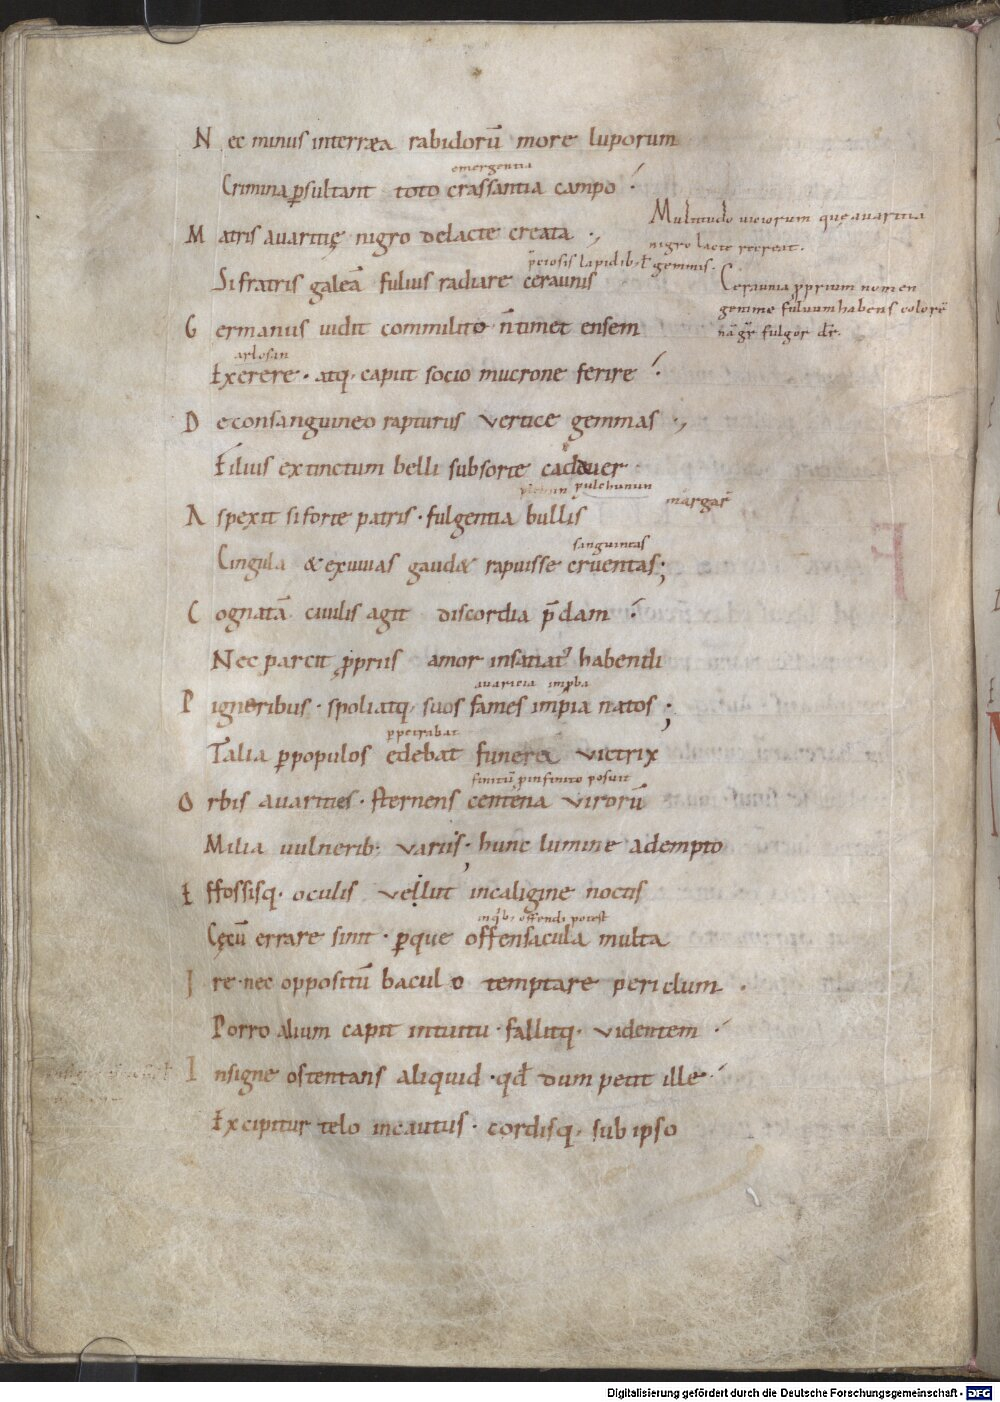 Nec minus interræa rabidorū more luporum
emergentia
Crimina ꝑsultant toto crassantia campo
Multitudo uiciorum quę auaritia
Matris auaritię nigro delacte creata
nigro lacte recreat.
p̄ciosis lapidib; ł gemmis.
Si fratris galeā fuluus radiare ceraunis
Ceraunia ꝓprium nomen
gemme fuluum habens colorē
Germanus uidit commilito n̄ timet ensem
nā gr̄ fulgor dr̄.
Exerere. atq; caput socio mucrone ferire
De consanguineo rapturus vertice gemmas
Filius extinctum belli subsorte cadauer
pulchrarum
margar̄
Aspexit si forte patris. fulgentia bullis
sanguintas
Cingula & exuuias gaud& rapuisse cruentas;
Cognatā ciuilis agit discordia p̄dam
Nec parcit ꝓpriis amor insatiat᾽ habendi
auaricia
Pigneribus. spoliatq; suos fames impia natos;
ꝑpetrabat
Talia ꝑpopulos edebat funera victrix
finitū ꝓinfinito posuit
Orbis auarities. sternens centena virorū
Milia uulnerib; variis. hunc lumine adempto
Effossisq. oculis vellut incaligine noctis
inq̇b; offendi potest
Cęcū errare sinit. ꝑque offensacula multa
Ire. nec oppositū baculo temptare periclum.
Porro alium capit intuitu. fallitq. videntem
Insigne ostentans aliquid. qđ dum petit ille
Excipitur telo incautus. cordisq; sub ipso
Digitalisierung gefördert durch die Deutsche Forschungsgemeinschaft - DFG